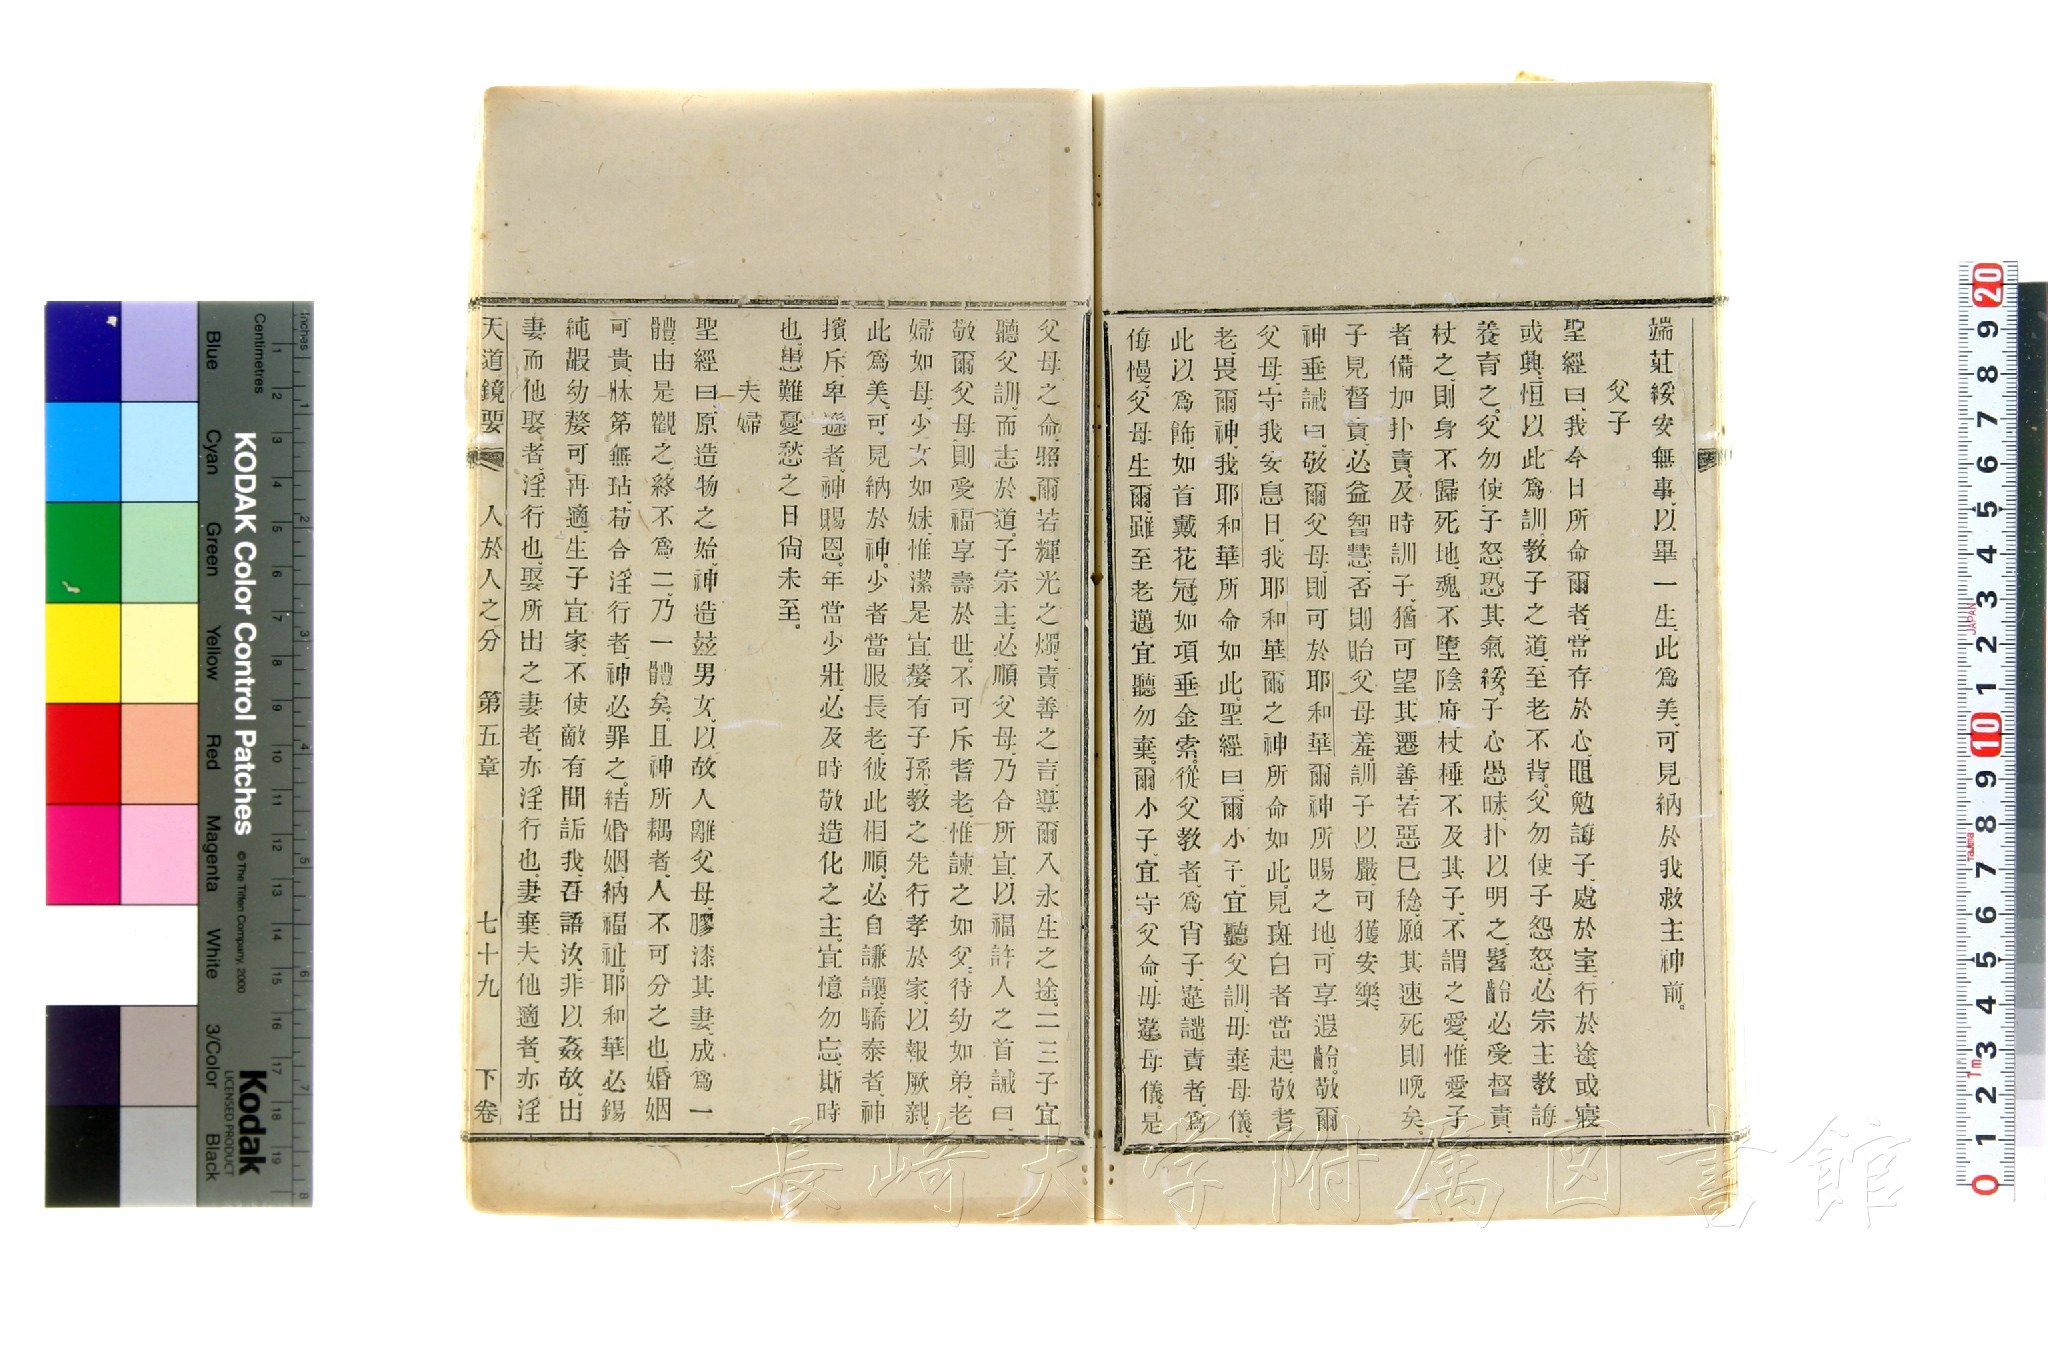 端莊綏安無事、以畢一生、此爲美、可見納於我救主神前。
父子
聖經曰、我今日所命爾者、當存於心、黽勉誨子、處於室、行於途、或寢
或興、恒以此爲訓、教子之道、至老不背。父勿使子怨怒、必宗主教誨
養育之。父勿使子怒、恐其氣綏。子心愚昧、扑以明之、髫齡必受督責、
杖之、則身不歸死地、魂不墮陰府、杖棰不及其子、不謂之愛、惟愛子
者、備加扑責、及時訓子、猶可望其遷善、若惡已稔、願其速死則晚矣、
子見督責、必益智慧、否則貽父母羞、訓子以嚴、可獲安樂、
神垂誡曰、敬爾父母、則可於耶和華爾神所賜之地、可享遐齡。敬爾
父母、守我安息日、我耶和華爾之神所命如此、見斑白者當起、敬耆
老、畏爾神、我耶和華所命如此。聖經曰、爾小子、宜聽父訓、毋棄母儀、
此以爲飾、如首戴花冠、如項垂金索。從父教者、爲肖子、違譴責者、爲
侮慢、父母生爾、雖至老邁、宜聽勿棄、爾小子、宜守父命、毋違母儀、是
父母之命、照爾若輝光之燭、責善之言、導爾入永生之途、二三子宜
聽父訓、而志於道。子宗主、必順父母、乃合所宜、以福許人之首誡曰、
敬爾父母、則受福享壽於世。不可斥耆老、惟諫之如父、待幼如弟、老
婦如母、少女如妹、惟潔是宜、嫠有子孫、教之先行孝於家、以報厥親、
此爲美、可見納於神。少者當服長老、彼此相順、必自謙讓、驕泰者、神
擯斥、卑遜者、神賜恩。年當少壯、必及時敬造化之主、宜憶勿忘、斯時
也、患難憂愁之日尙未至。
夫婦
聖經曰、原造物之始、神造玆男女、以故人離父母、膠漆其妻、成爲一
體、由是觀之、終不爲二、乃一體矣。且神所耦者、人不可分之也、婚姻
可貴、牀第無玷、苟合淫行者、神必罪之。結婚姻、納福祉、耶和華必錫
純嘏、幼嫠可再適、生子宜家、不使敵有間詬我、吾語汝、非以姦故、出
妻而他娶者、淫行也、娶所出之妻者、亦淫行也、妻棄夫他適者、亦淫
天道鏡要 人於人之分 第五章 七十九 下卷
Inches
Centimetres
1 2 3 4 5 6 7 8 9 10 11 12 13 14 15 16 17 18 19
Blue Cyan Green Yellow Red Magenta White 3/Color Black
KODAK Color Control Patches
© The Tiffen Company, 2000
Kodak
LICENSED PRODUCT
20 9 8 7 6 5 4 3 2 1 10 9 8 7 6 5 4 3 2 1 0
JAPAN
長崎大学附属図書館